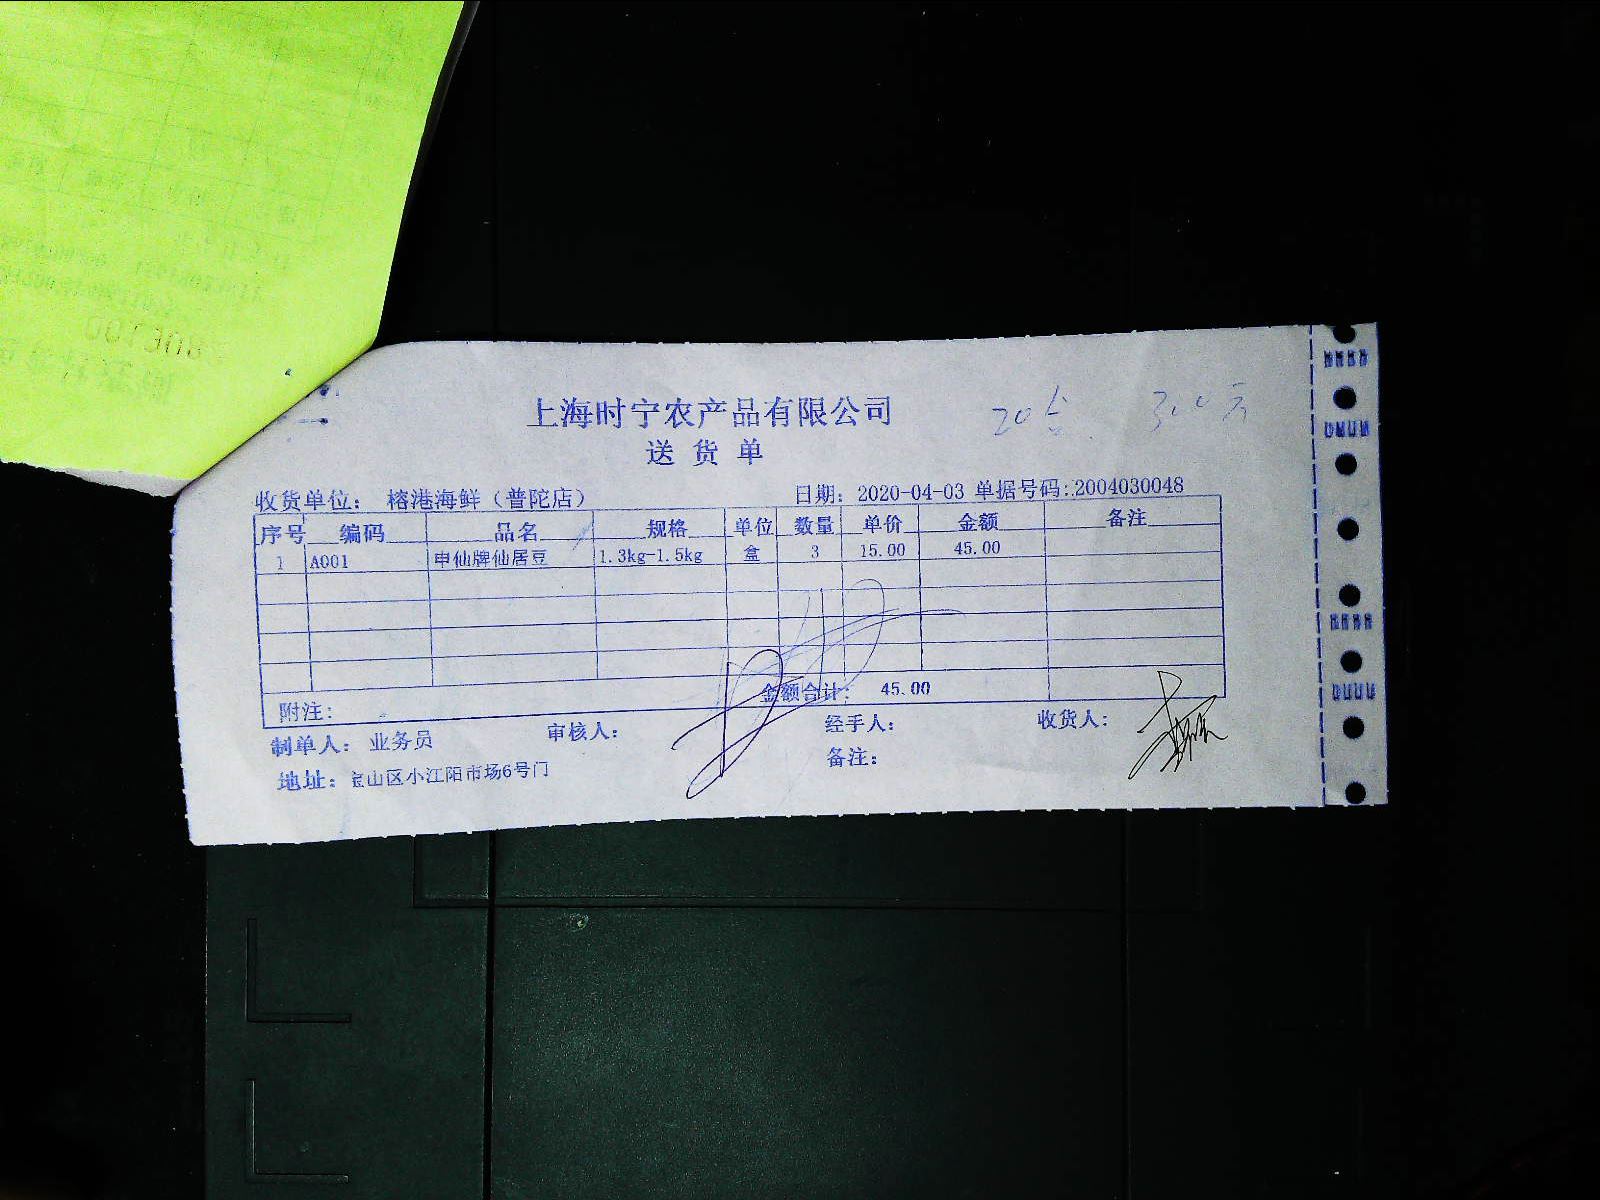 上海时宁农产品有限公司
送货单
收货单位： 榕港海鲜（普陀店） 日期：2020-04-03 单据号码:2004030048
序号 编码 品名 规格 单位 数量 单价 金额 备注
1 A001 申仙牌仙居豆 1.3kg-1.5kg 盒 3 15.00 45.00
附注： 金额合计： 45.00
制单人： 业务员 审核人： 经手人： 收货人：
地址：宝山区小江阳市场6号门 备注：